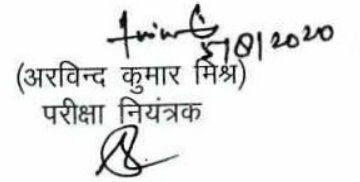 5/8/2020
(अरविन्द कुमार मिश्र)
परीक्षा नियंत्रक